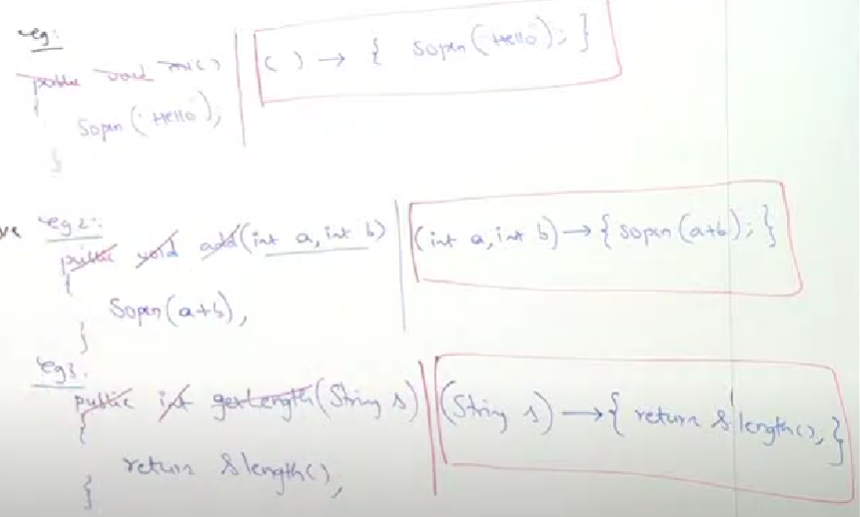 eg:
public void m1()
{
Sopln("Hello");
}
() → { Sopln("Hello"); }
eg2:
public void add(int a, int b)
{
Sopln(a+b);
}
(int a, int b) → { Sopln(a+b); }
eg3:
public int getLength(String s)
{
return s.length();
}
(String s) → { return s.length(); }